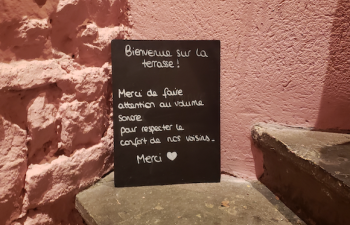 Bienvenue sur la
terrasse !
Merci de faire
attention au volume
sonore
pour respecter le
confort de nos voisins.
Merci ♥